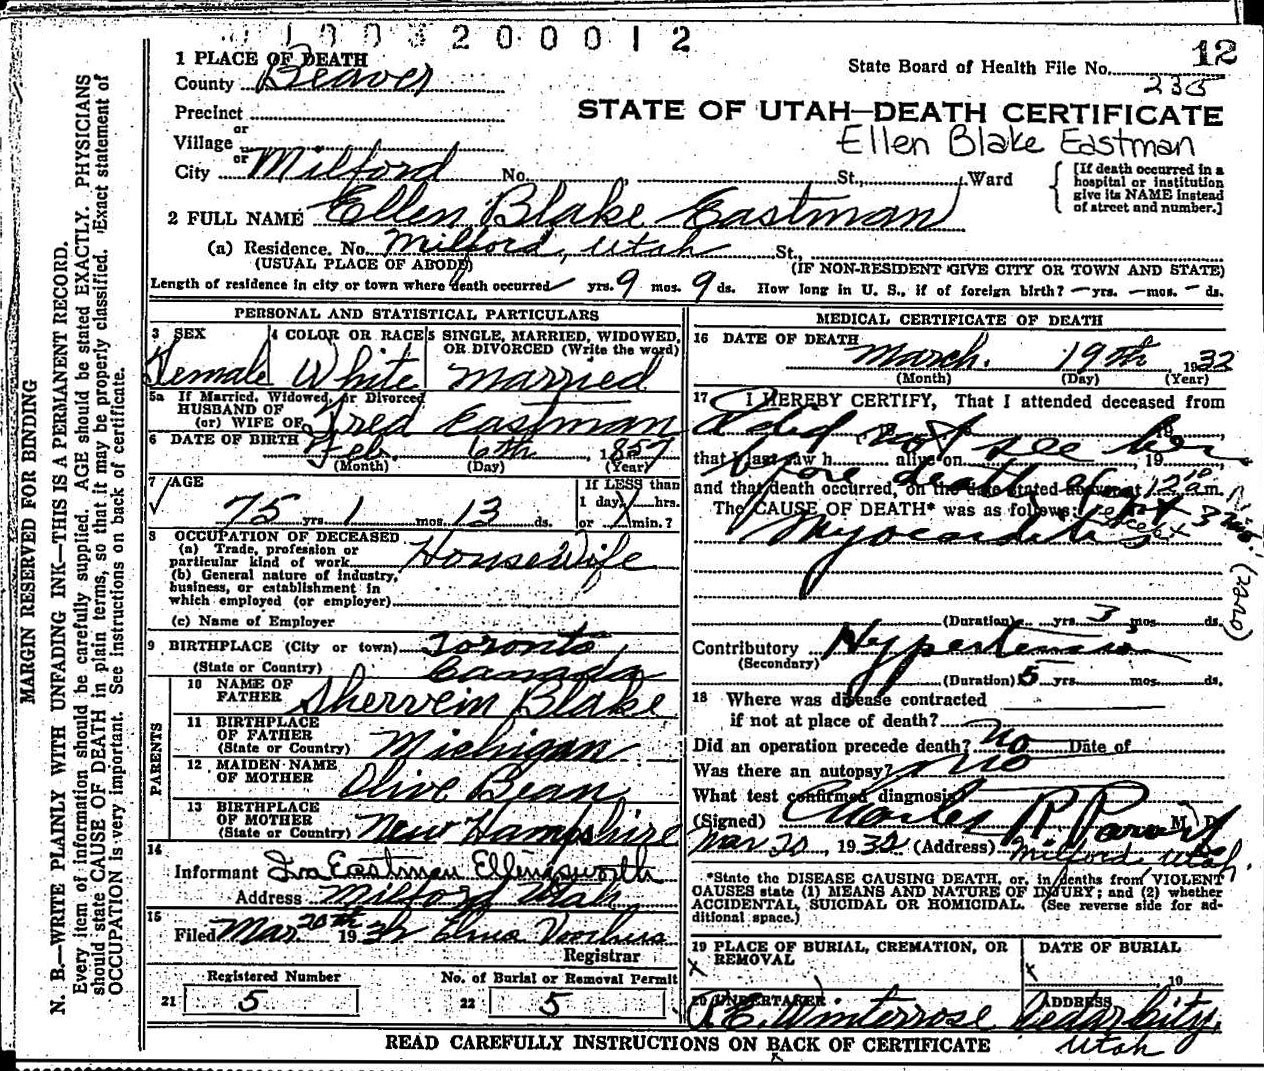 1003200012
12
1 PLACE OF DEATH
County Beaver
State Board of Health File No.
235
Precinct
or
Village
or
City Milford No. St., Ward
STATE OF UTAH—DEATH CERTIFICATE
Ellen Blake Eastman
[If death occurred in a
hospital or institution
give its NAME instead
of street and number.]
2 FULL NAME Ellen Blake Eastman
(a) Residence. No. Milford, Utah St.,
(USUAL PLACE OF ABODE) (IF NON-RESIDENT GIVE CITY OR TOWN AND STATE)
Length of residence in city or town where death occurred yrs. 9 mos. 9 ds. How long in U. S., if of foreign birth? — yrs. — mos. — ds.
PERSONAL AND STATISTICAL PARTICULARS
3 SEX 4 COLOR OR RACE 5 SINGLE, MARRIED, WIDOWED,
OR DIVORCED (Write the word)
Female White Married
5a If Married, Widowed, or Divorced
HUSBAND OF
(or) WIFE OF Fred Eastman
6 DATE OF BIRTH Feb. 6th, 1857
(Month) (Day) (Year)
7 AGE If LESS than
1 day, hrs.
75 yrs. 1 mos. 13 ds. or min.?
8 OCCUPATION OF DECEASED
(a) Trade, profession or
particular kind of work Housewife
(b) General nature of industry,
business, or establishment in
which employed (or employer)
(c) Name of Employer
9 BIRTHPLACE (City or town) Toronto,
(State or Country) Canada
PARENTS
10 NAME OF
FATHER Shervein Blake
11 BIRTHPLACE
OF FATHER
(State or Country) Michigan
12 MAIDEN NAME
OF MOTHER Olive Bean
13 BIRTHPLACE
OF MOTHER
(State or Country) New Hampshire
14
Informant Iva Eastman Ellingsworth
Address Milford Utah
15
Filed Mar. 20th 1932 Elma Voorhees
Registrar
Registered Number No. of Burial or Removal Permit
21 5 22 5
MEDICAL CERTIFICATE OF DEATH
16 DATE OF DEATH March. 19th, 1932
(Month) (Day) (Year)
17 I HEREBY CERTIFY, That I attended deceased from
I did not see her 19
that I last saw h alive on , 19
before death
and that death occurred, on the date stated above, at 12 10 a.m.
The CAUSE OF DEATH* was as follows:
except 3
Myocarditis
(Duration) yrs. 3 mos. ds.
Contributory Hypertension
(Secondary)
(Duration) 5 yrs. mos. ds.
18 Where was disease contracted
if not at place of death?
Did an operation precede death? no Date of
Was there an autopsy? no
What test confirmed diagnosis?
(Signed) Charles R Parrish M. D.
Mar 20, 1932 (Address) Milford, Utah.
*State the DISEASE CAUSING DEATH, or, in deaths from VIOLENT
CAUSES state (1) MEANS AND NATURE OF INJURY; and (2) whether
ACCIDENTAL, SUICIDAL OR HOMICIDAL. (See reverse side for ad-
ditional space.)
19 PLACE OF BURIAL, CREMATION, OR
REMOVAL
x
DATE OF BURIAL
x , 19
20 UNDERTAKER ADDRESS
P.E. Winterrose Cedar City,
Utah
READ CAREFULLY INSTRUCTIONS ON BACK OF CERTIFICATE
MARGIN RESERVED FOR BINDING
N. B.—WRITE PLAINLY WITH UNFADING INK—THIS IS A PERMANENT RECORD.
Every item of information should be carefully supplied. AGE should be stated EXACTLY. PHYSICIANS
should state CAUSE OF DEATH in plain terms, so that it may be properly classified. Exact statement of
OCCUPATION is very important. See instructions on back of certificate.